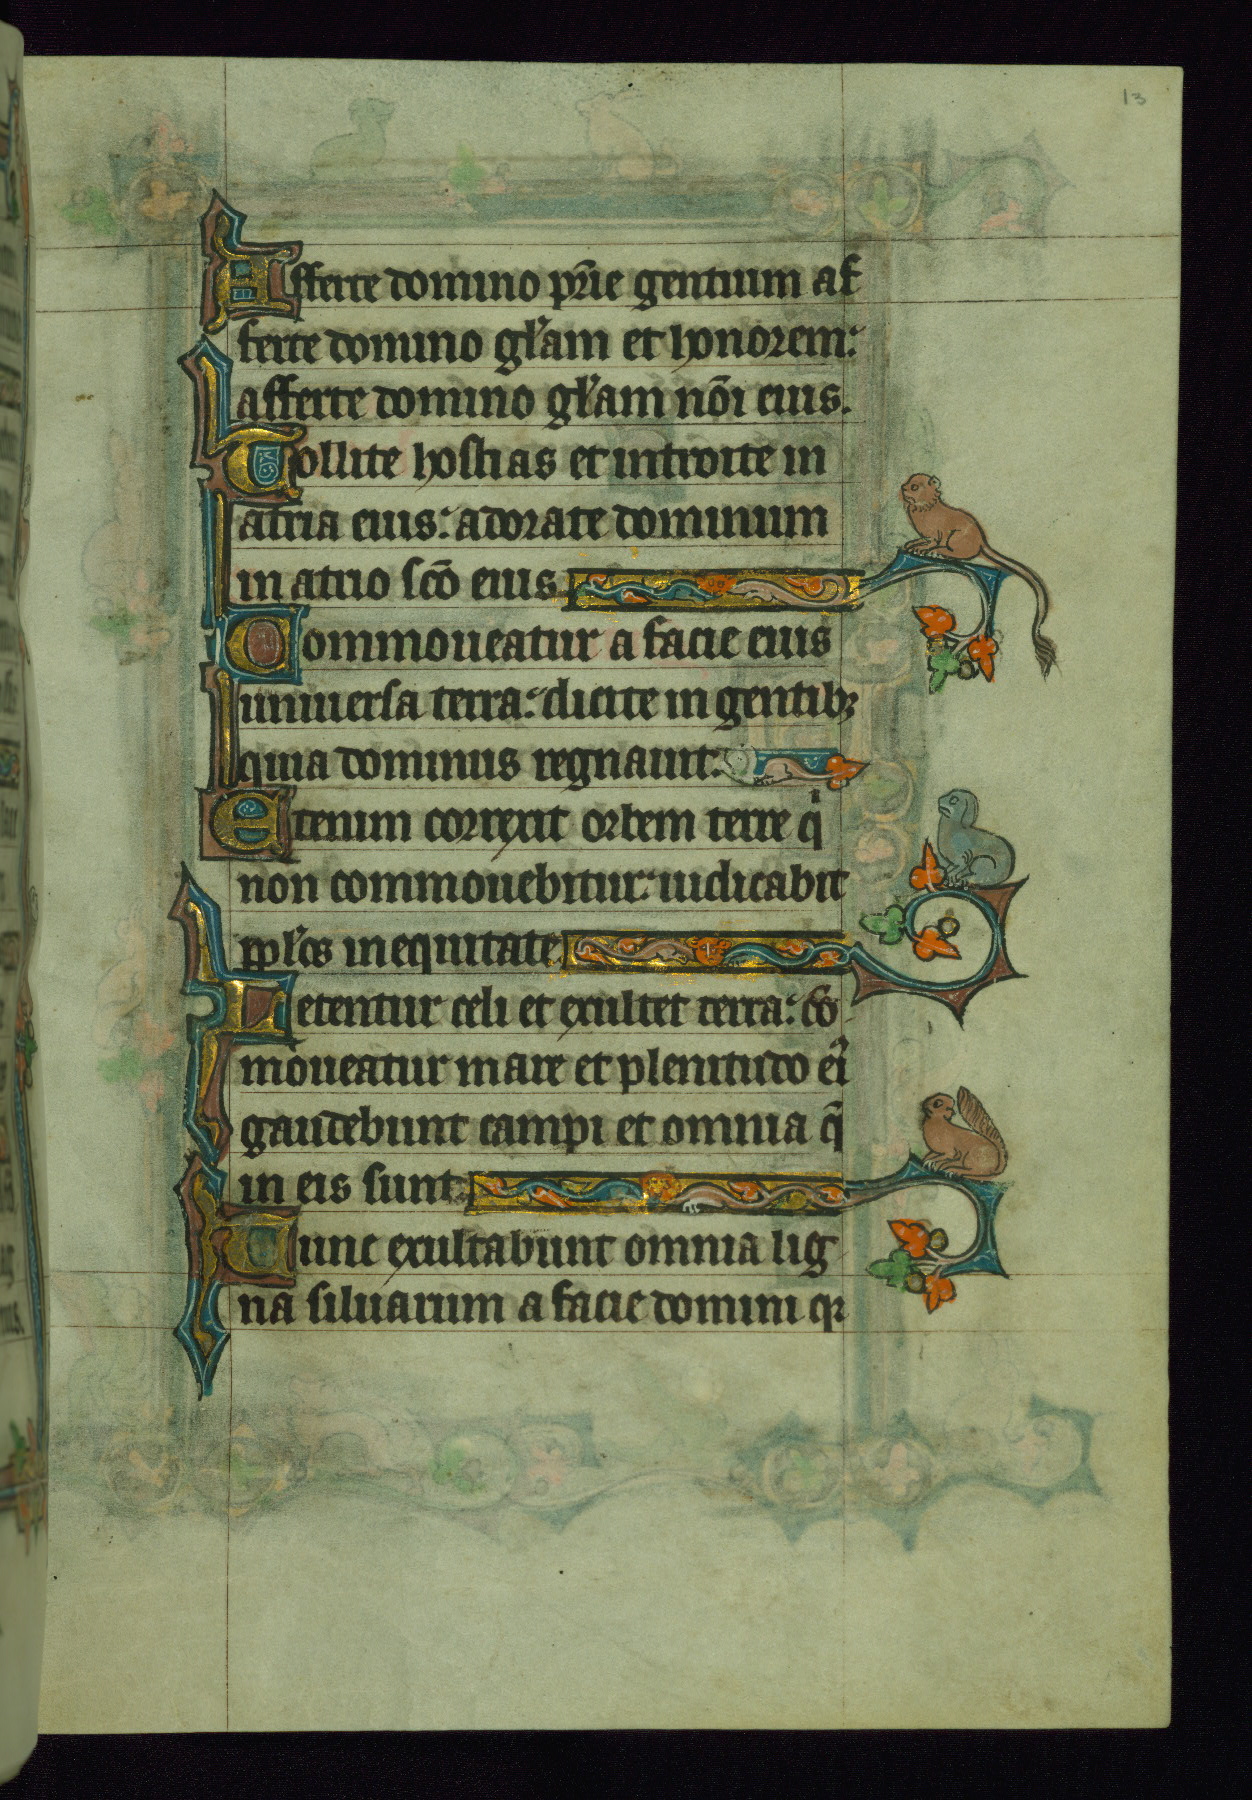 13
Afferte domino pr̄ie gentium af
ferte domino gl'am et honorem:
afferte domino gl'am nōi eius.
Tollite hostias et introite in
atria eius: adorate dominum
in atrio scō eius
Commoueatur a facie eius
uniuersa terra: dicite in gentibꝫ
quia dominus regnauit.
Etenim correxit orbem terre qͥ
non commouebitur: iudicabit
ppl'os in equitate.
Letentur celi et exultet terra: cō
moueatur mare et plenitudo eiꝰ
gaudebunt campi et omnia q̄
in eis sunt.
Tunc exultabunt omnia lig
na siluarum a facie domini qꝛ